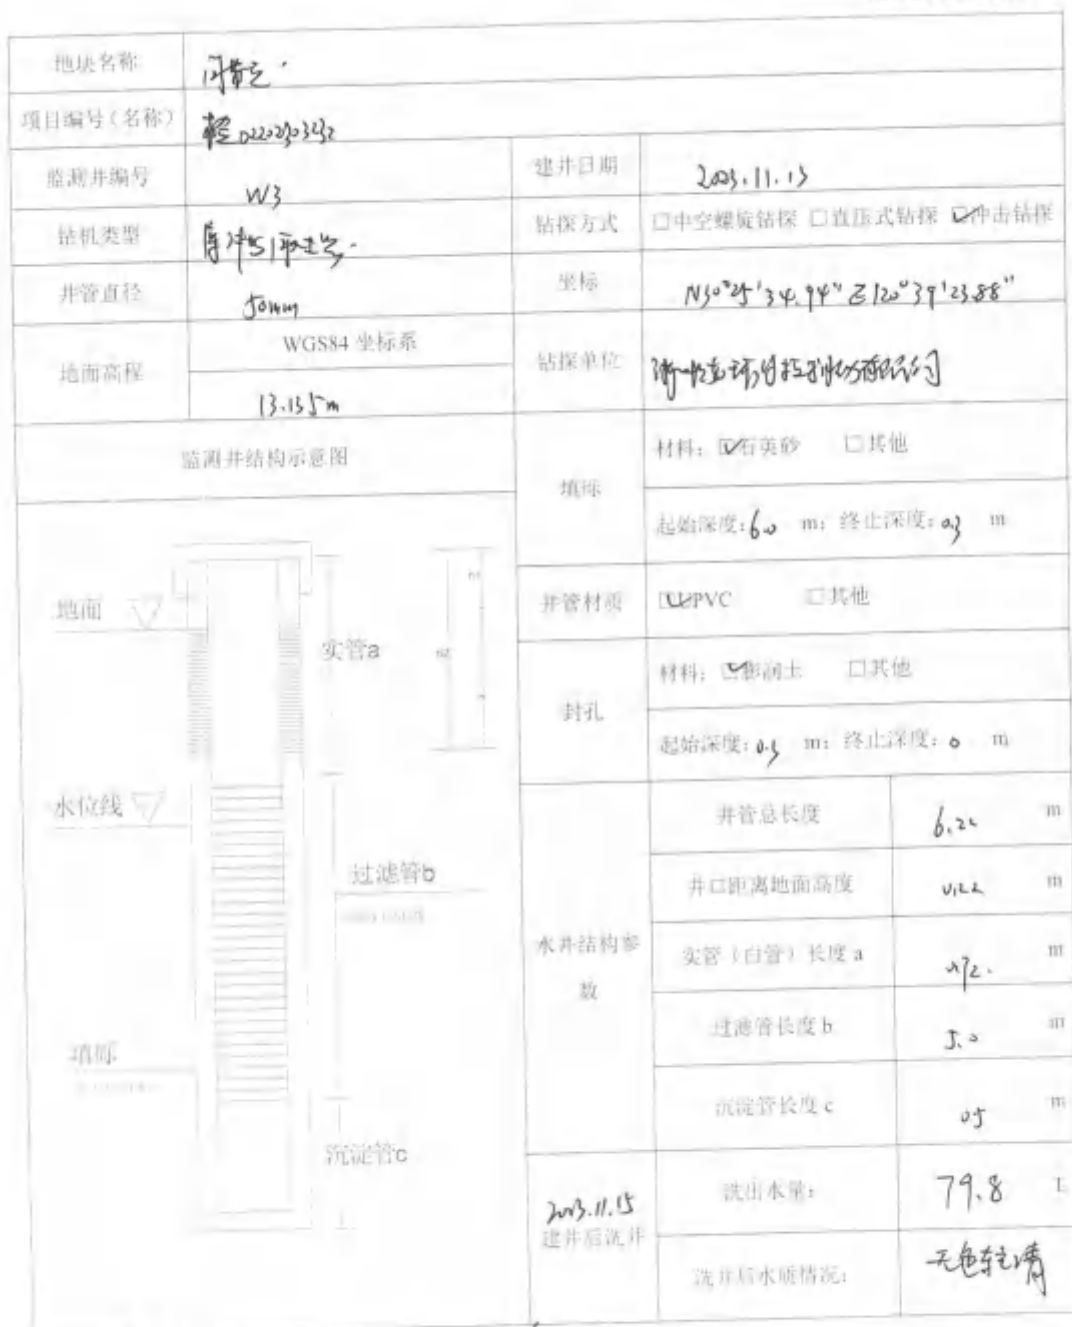 地块名称
项目编号（名称）
监测井编号 W3 建井日期 2023.11.13
钻机类型 钻探方式 □中空螺旋钻探 □直压式钻探 ☑冲击钻探
井管直径 50mm 坐标 N30°25'34.94" E120°39'23.88"
地面高程 WGS84 坐标系 钻探单位
13.135m
监测井结构示意图
填砾 材料：☑石英砂 □其他
起始深度：6.0 m；终止深度：0.3 m
井管材质 ☑PVC □其他
封孔 材料：☑膨润土 □其他
起始深度：0.3 m；终止深度：0 m
地面
实管a
水位线
过滤管b
填砾
沉淀管c
水井结构参数
井管总长度 6.22 m
井口距离地面高度 0.22 m
实管（白管）长度 a 0.72 m
过滤管长度 b 5.0 m
沉淀管长度 c 0.5 m
2023.11.15
建井后洗井
洗出水量： 79.8 L
洗井后水质情况：